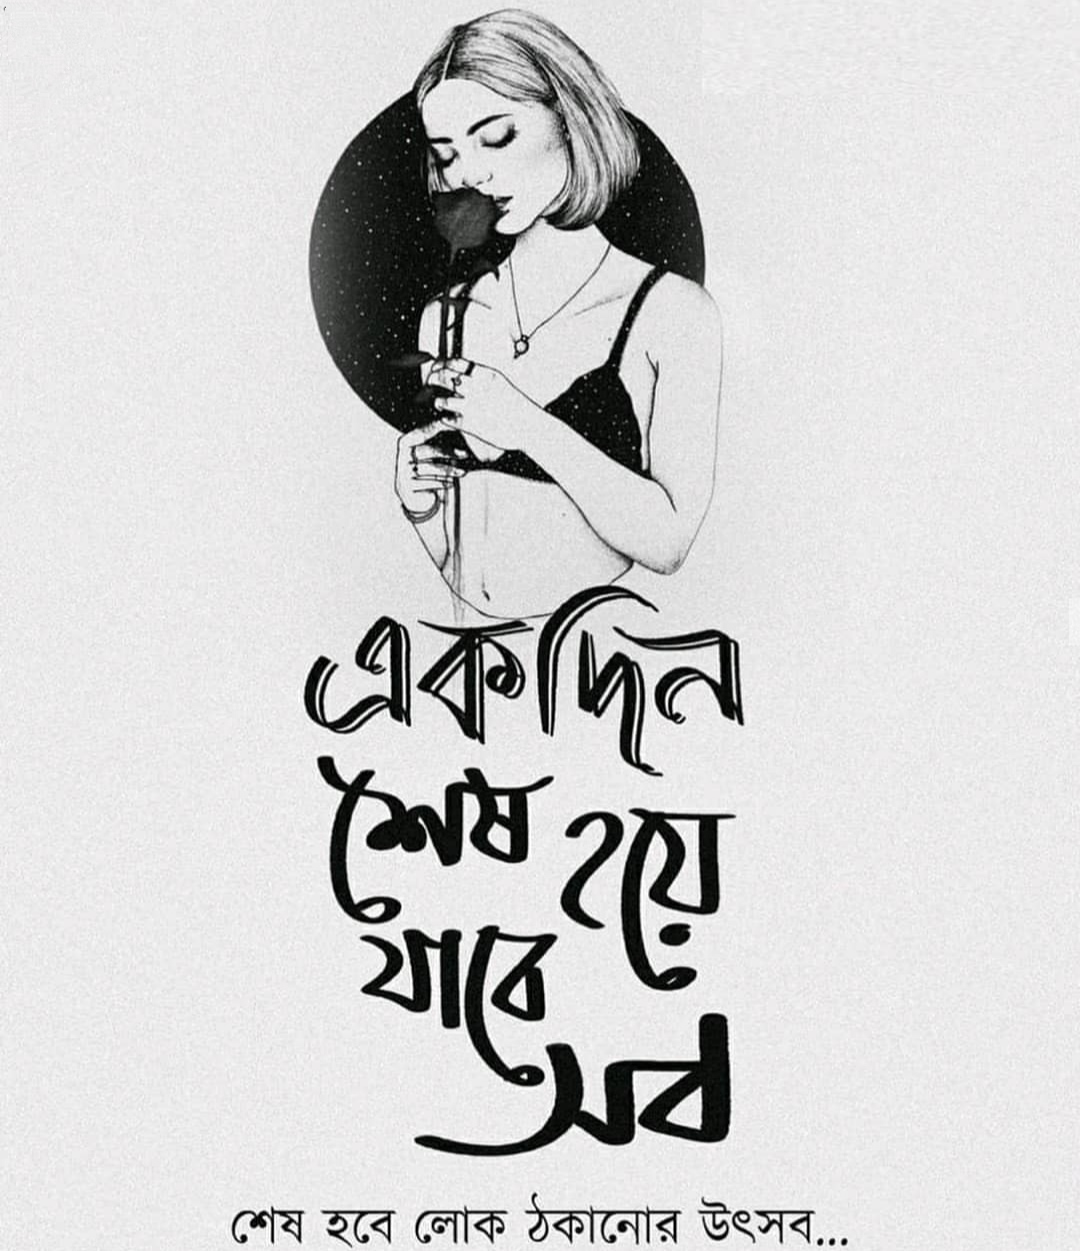 একদিন
শেষ হয়ে
যাবে
সব
শেষ হবে লোক ঠকানোর উৎসব...